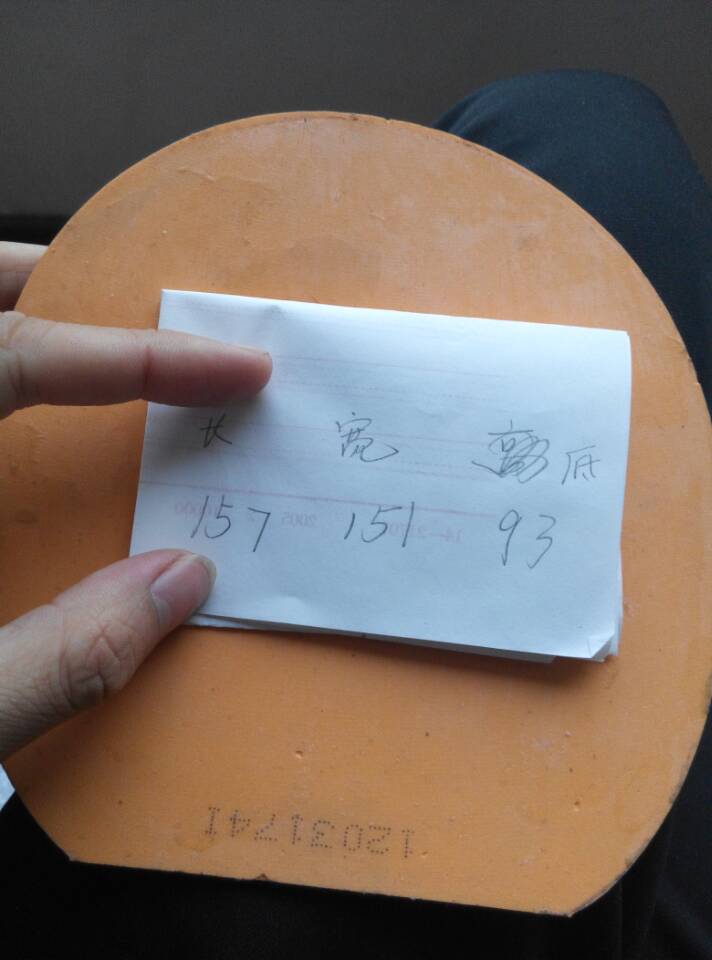 长 宽 底
157 151 93
12031741